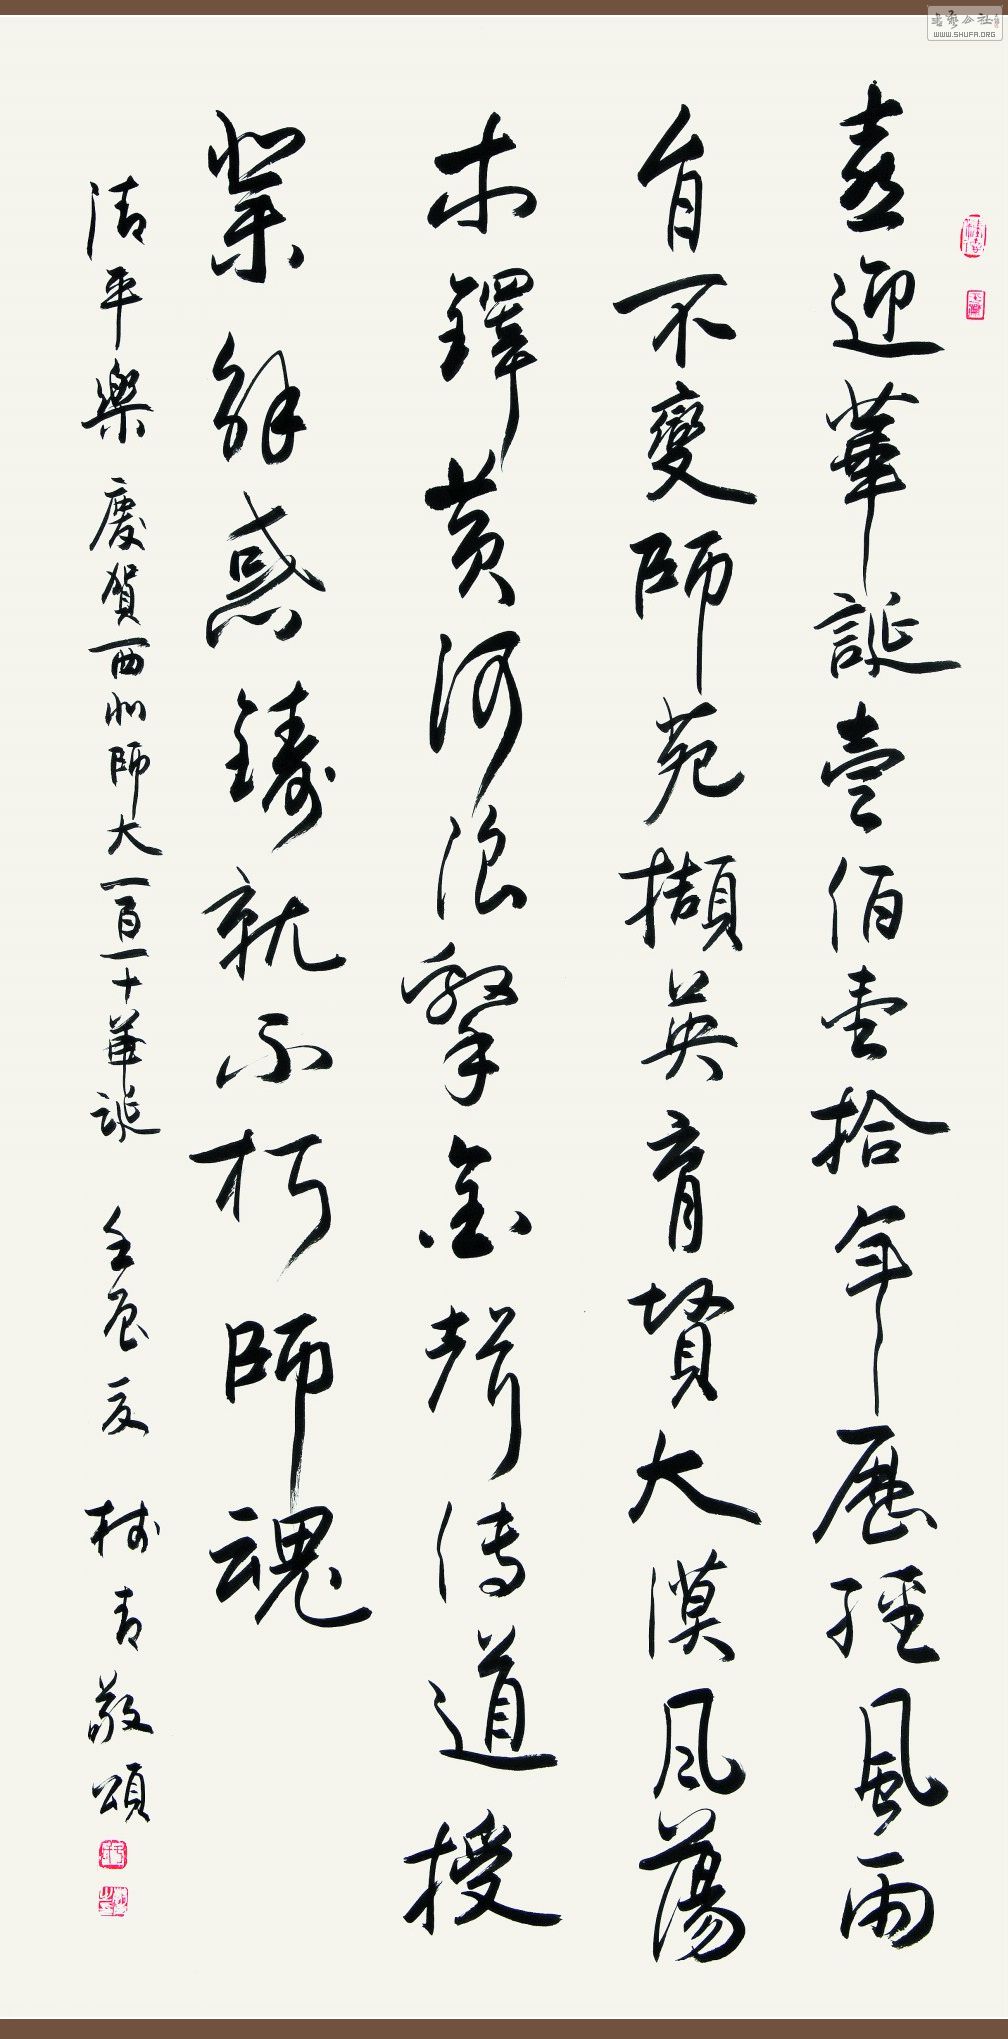 喜迎華誕壹佰壹拾年歷經風雨
自不變師苑擷英育賢大漠風蕩
木鐸黄河浪擊金聲傳道授
業解惑鑄就不朽師魂
清平樂 慶賀西北師大一百一十華誕 壬辰夏 樹青敬頌
書藝公社
WWW.SHUFA.ORG